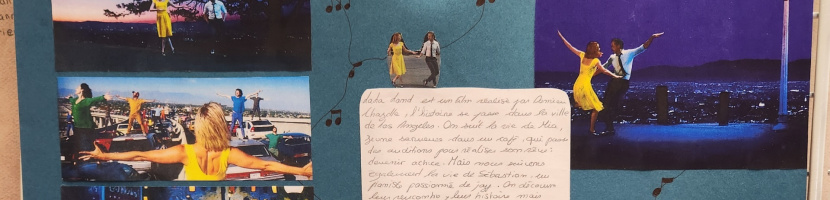 LaLa Land est un film réalisé par Damien
Chazelle, l'histoire se passe dans la ville
de Los Angeles. On suit la vie de Mia,
jeune serveuse dans un café, qui passe
des auditions pour réaliser son rêve :
devenir actrice. Mais nous suivons
également la vie de Sébastian, un
pianiste passionné de jazz. On découvre
leur rencontre, leur histoire mais